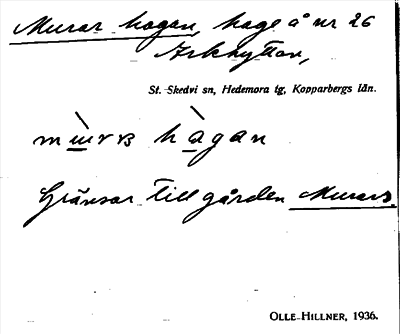 Murar hagan, hage å nr 26
Arkhyttan,
St. Skedvi sn, Hedemora tg, Kopparbergs län.
hàgan
Gränsar till gården Murars
OLLE HILLNER, 1936.